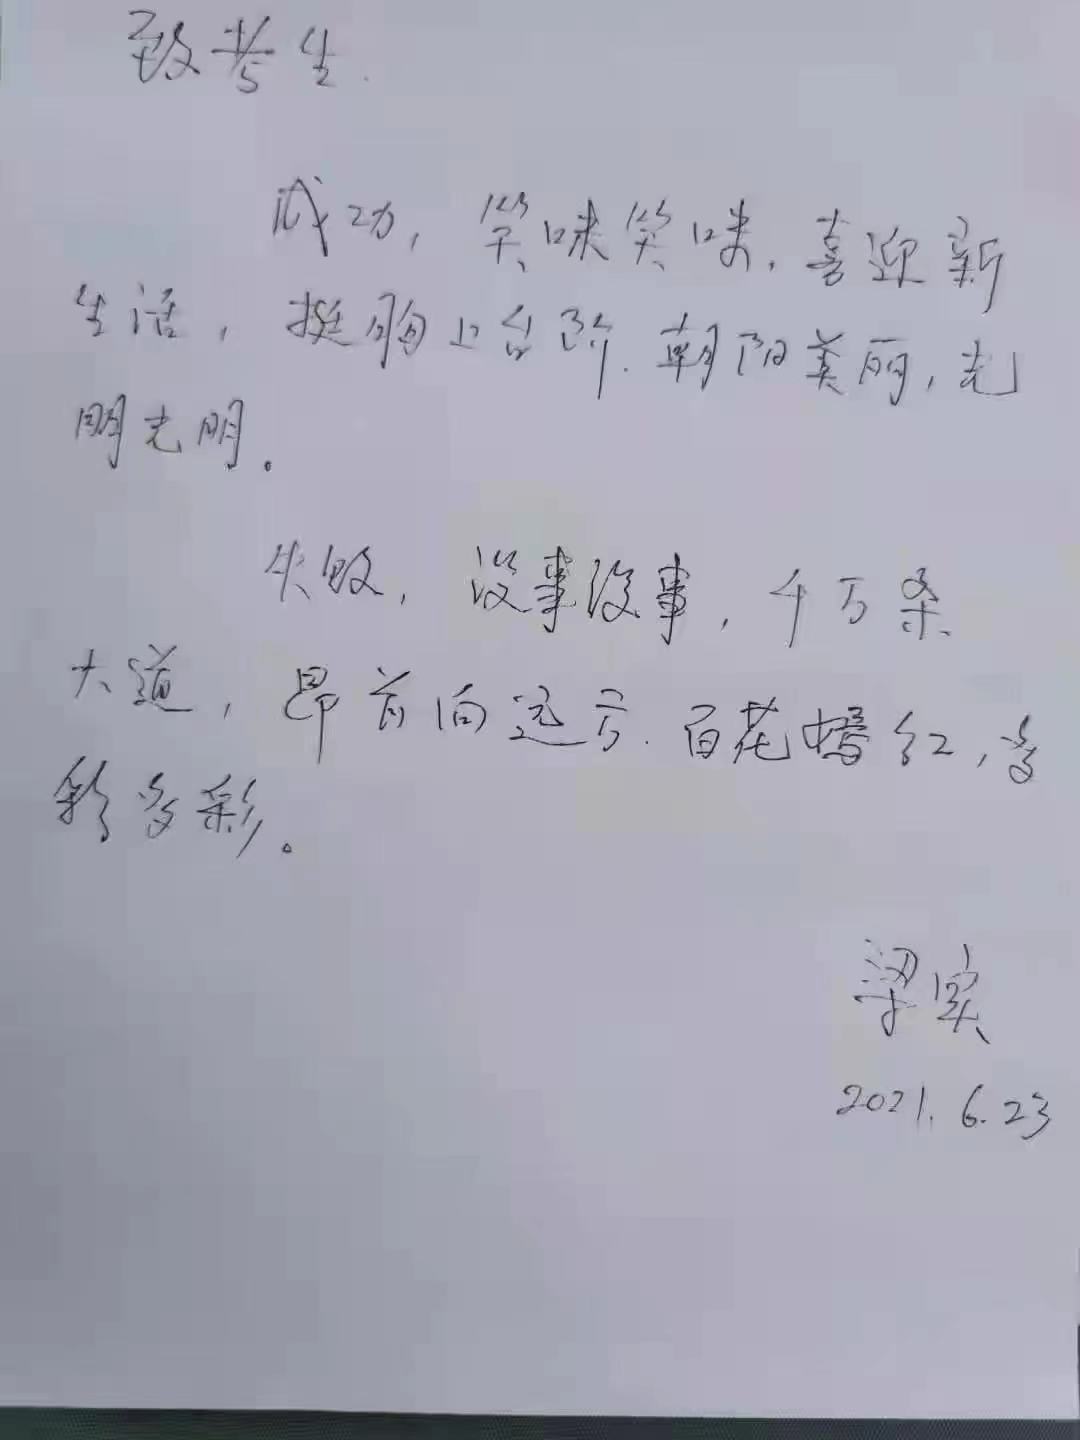 致考生
成功，笑咪笑咪，喜迎新
生活，挺胸上台阶.朝阳美丽，光
明光明。
失败，没事没事，千万条
大道，昂首向远方.百花嫣红，多
彩多彩。
梁实
2021.6.23